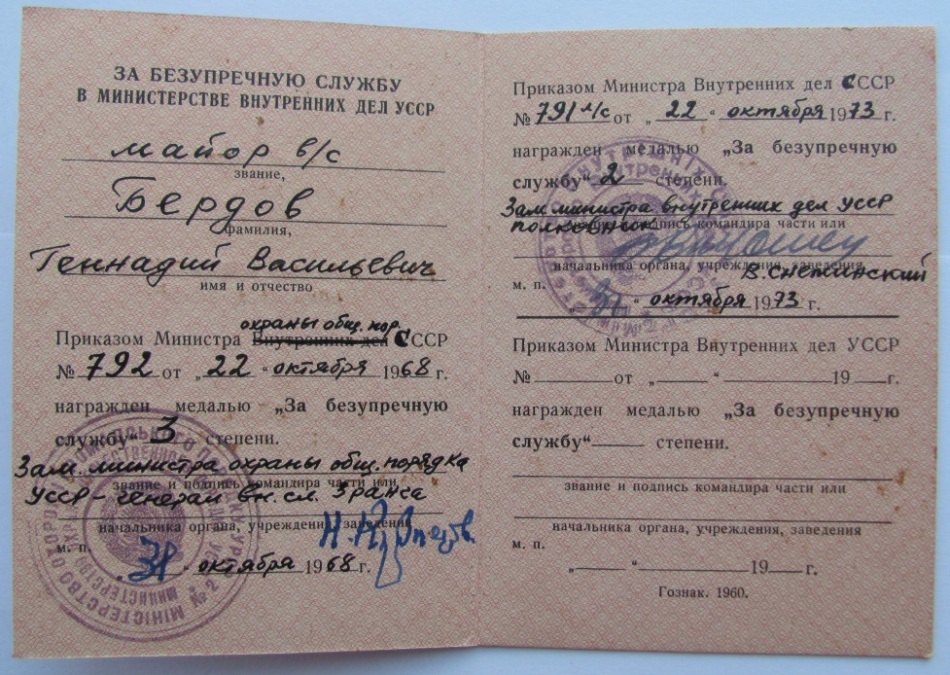 ЗА БЕЗУПРЕЧНУЮ СЛУЖБУ
В МИНИСТЕРСТВЕ ВНУТРЕННИХ ДЕЛ УССР
майор в/с
звание,
Бердов
фамилия,
Геннадий Васильевич
имя и отчество
охраны общ. пор.
Приказом Министра Внутренних дел ССР
№ 792 от „22“ октября 1968 г.
награжден медалью „За безупречную
службу“ 3 степени.
Зам. министра охраны общ. порядка
звание и подпись командира части или
УССР - генерал вн. сл. 3 ранга
начальника органа, учреждения, заведения
м. п.
„31“ октября 1968 г.
Приказом Министра Внутренних дел ССР
№ 791 л/с от „22“ октября 1973 г.
награжден медалью „За безупречную
службу“ 2 степени.
Зам. министра внутренних дел УССР
полковник
звание и подпись командира части или
начальника органа, учреждения, заведения
В. Снежинский
м. п.
„31“ октября 1973 г.
Приказом Министра Внутренних дел УССР
№ от „ “ 19 г.
награжден медалью „За безупречную
службу“ степени.
звание и подпись командира части или
начальника органа, учреждения, заведения
м. п.
„ “ 19 г.
Гознак. 1960.